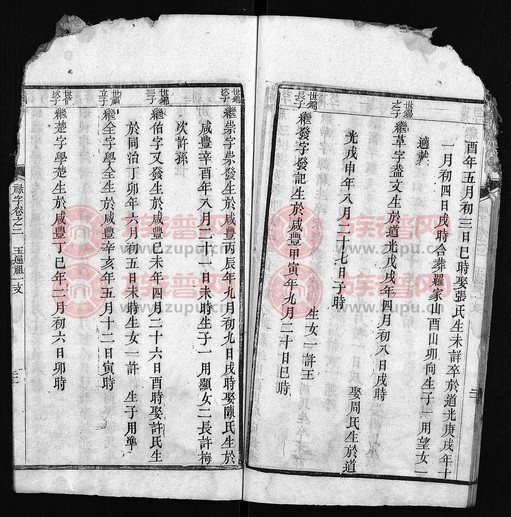 酉年五月初三日巳時娶張氏生未詳卒於道光庚戌年十
一月初四日戌時合葬羅家山酉山卯向生子一用望女一
適
世錫之子
繼草字盎文生於道光戊戌年四月初八日戌時
娶周氏生於道
光戊申年八月二十七日子時
生女一許王
世錫長子
繼發字發記生於咸豐甲寅年九月二十日巳時
繼崇字崇發生於咸豐丙辰年九月初九日戌時娶陳氏生於
咸豐辛酉年八月二十一日未時生子一用顯女二長許梅
次許孫
繼伯字又發生於咸豐己未年四月二十六日酉時娶許氏生
於同治丁卯年六月初五日未時生女一許
生子用準
繼全字學全生於咸豐辛亥年五月十二日寅時
繼楚字學楚生於咸豐丁巳年二月初六日卯時
祿字卷之二
族譜网